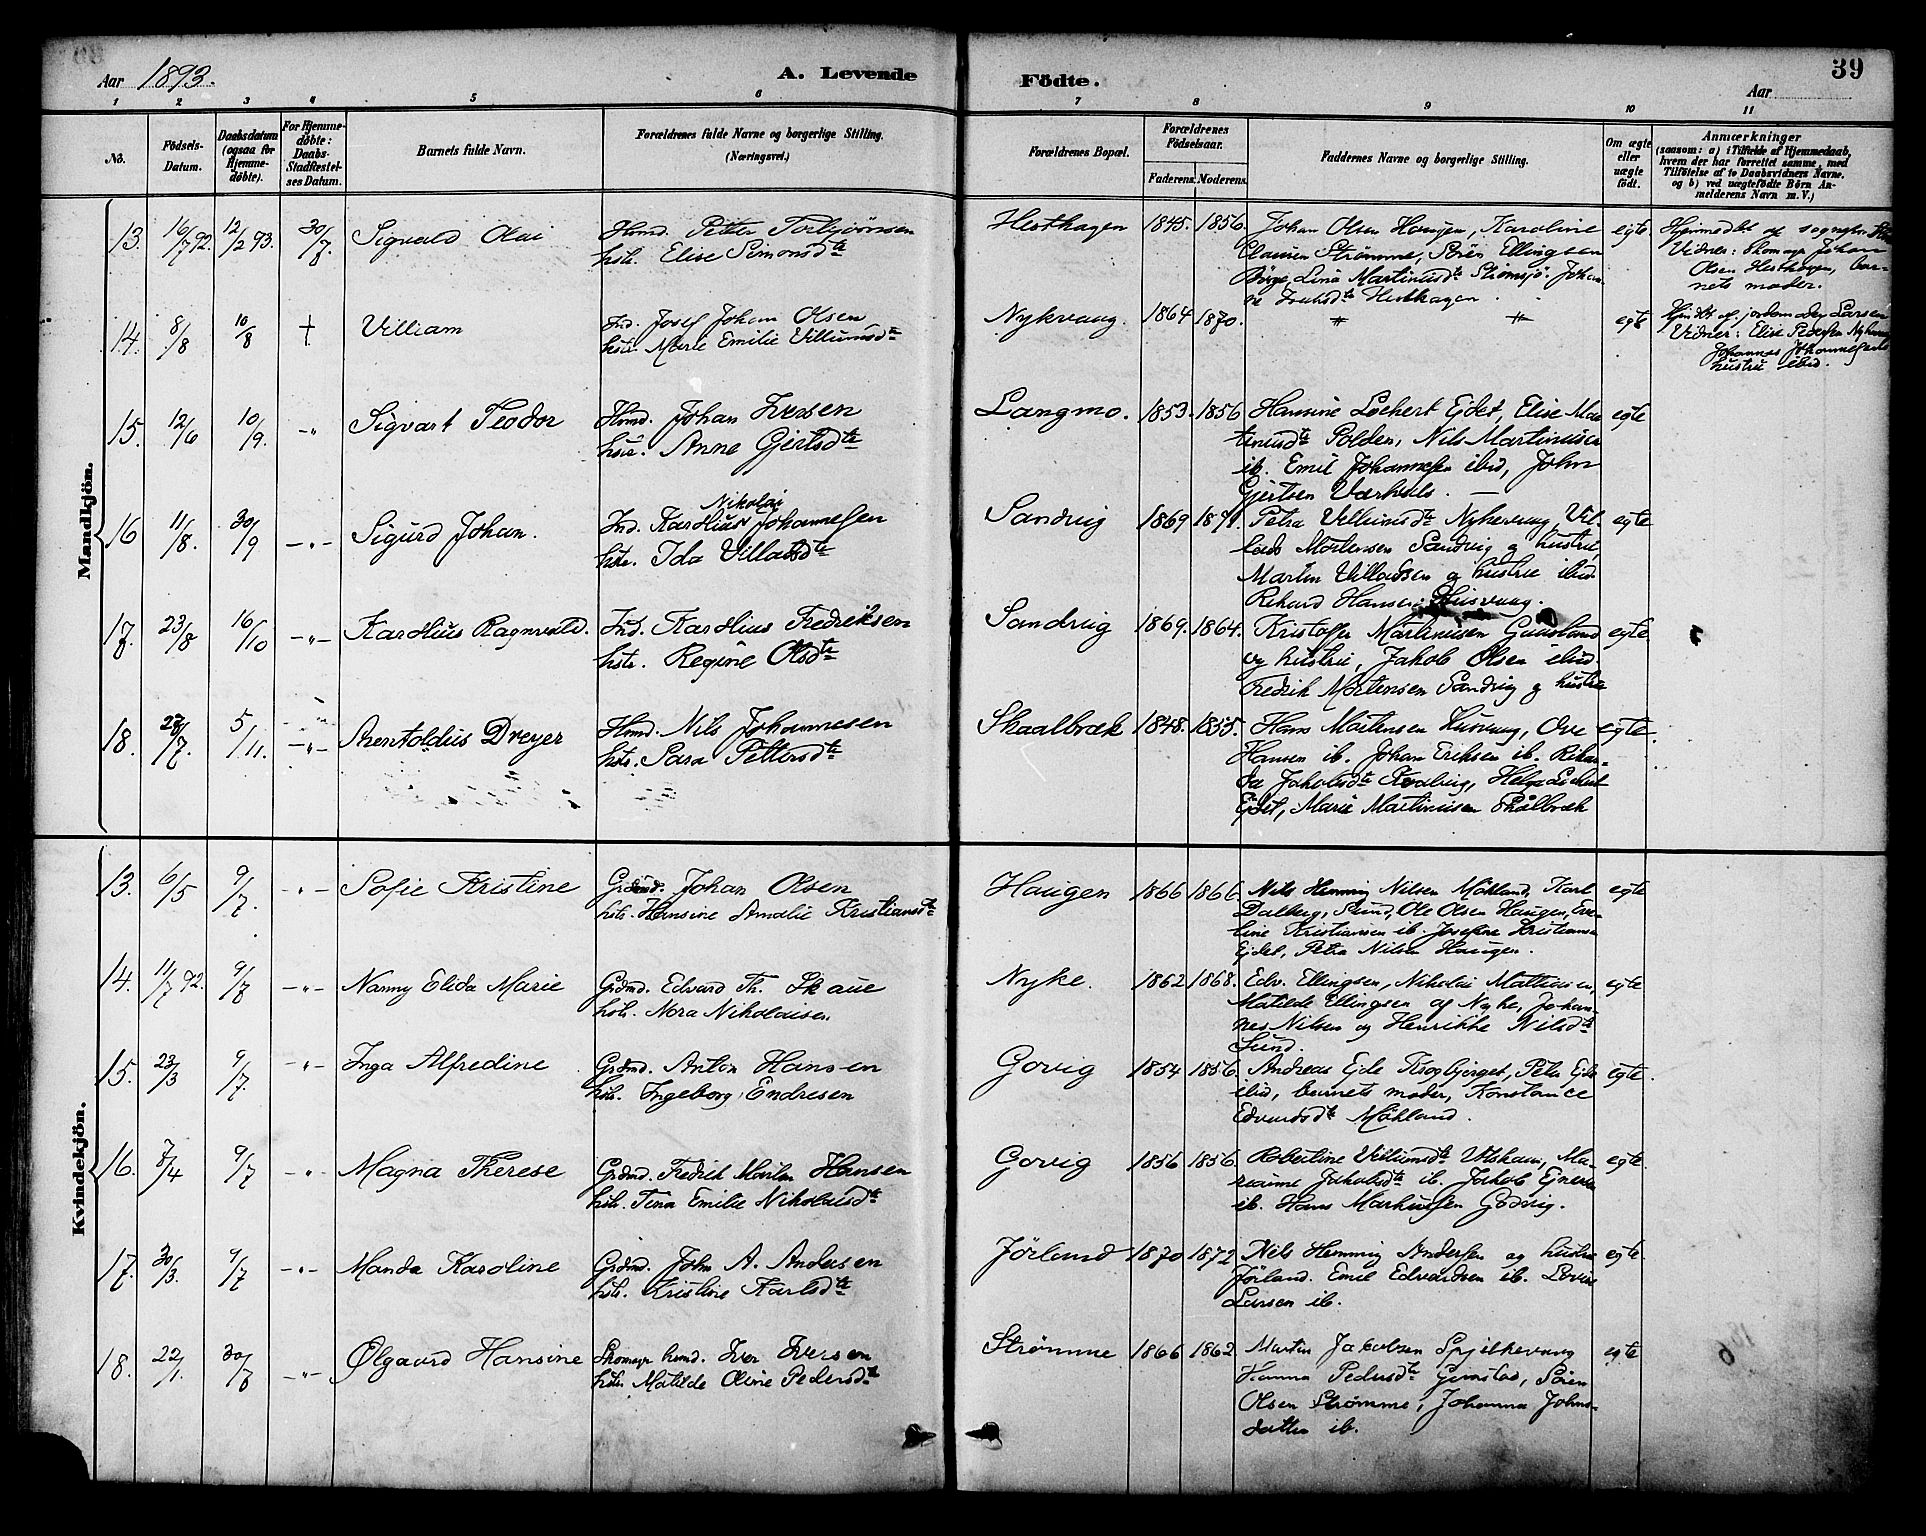 Aar 1893.
A. Levende Födte.
39
Aar
1 2 3 4 5 6 7 8 9 10 11
No.
Födsels-
Datum.
Daabsdatum
(ogsaa for
Hjemme-
döbte).
For Hjemme-
döbte:
Daabs-
Stadfæstel-
ses Datum.
Barnets fulde Navn.
Forældrenes fulde Navne og borgerlige Stilling.
(Næringsvei.)
Forældrenes Bopæl.
Forældrenes
Födselsaar.
Faderens. Moderens.
Faddernes Navne og borgerlige Stilling.
Om ægte
eller
uægte
födt.
Anmærkninger
(saasom: a) i Tilfælde af Hjemmedaab,
hvem der har forrettet samme, med
Tilföielse af to Daabsvidners Navne,
og b) ved uægtefödte Börn An-
melderens Navn m. V.)
Mandkjön.
13. 16/7 92. 12/2 93. 30/7. Sigvald Olai
Hmd. Petter Torbjörnsen
hstr. Elise Simonsdtr
Hesthagen 1845. 1856.
Johan Olsen Haugen, Karoline
Clausen Strømme, Sören Ellingsen
Börge, Lina Martinusdtr Strømsjö. Johan-
Hesthagen
egte.
Hjemmedbt af
Vidner: Johan
Olsen Hesthagen, bar-
nets moder.
14. 8/8 10/8 † Villiam
Ind. Josef Johan Olsen
hstr. Marie Emilie Villumsdtr
Nykvaag. 1864 1870. " " egte
Hjdbt af jordem. Larsen
Vidner: Elise Pedersen Nykvaag
Johannes Johannesens
hustru ibid.
15. 12/6 10/9. -"- Sigvart Teodor
Hmd. Johan Iversen
hstr. Anne Gjertsdtr
Langmo. 1853. 1856
Hansine Lochert Ejdet, Elise Mar-
tinusdtr Polden, Nils Martinusen
ib. Emil Johannesen ibid, John
Gjertsen Værhals. —
egte
16 11/8. 30/9 -"- Sigurd Johan.
Nikolai
Ind. Karolius Johannesen
hstr. Ida Villadsdtr
Sandvig 1869 1871.
Petra Villumsdtr Nykvaag, Vil-
lads Mortensen Sandvig g hustru,
Martin Villadsen g hustru ibid.
Rikard Hansen
egte
17. 23/8 16/10 -"- Karolius Ragnvald.
Ind. Karolius Fredriksen
hstr. Regine Olsdtr
Sandvig 1869. 1864.
Kristoffer Martinusen Guusland
og hustru, Jakob Olsen ibid.
Fredrik Mortensen Sandvig g hustru
egte
18. 23/7 5/11. -"- Arentoldus Dreyer
Hmd. Nils Johannesen
hstr. Sara Pettersdtr
Skaalbræk 1848. 1855.
Hans Mortensen Kurvaag, Ove
Hansen ib. Johan Eriksen ib. Rikar-
da Jakobsdtr Helga Lochert
Ejdet, Marie Martinusen Skålbræk
egte.
Kvindekjön.
13. 6/5 9/7. -"- Sofie Kristine
Grdmd. Johan Olsen
hstr. Hansine Amalie Kristiansdtr
Haugen 1866 1866.
Nils Hemming Nilsen Mökland, Karl
Dalberg, Sund, Ole Olsen Haugen, Eve-
line Kristiansen ib. Josefine Kristiansen
Ejdet, Petra Nilsen Haugen.
egte
14. 11/7 92. 9/7 -"- Nanny Elida Marie
Grdmd. Edvard Th. Skaue
hstr. Nora Nikolaisen
Nyke. 1862 1868.
Edv. Ellingsen, Nikolai Mathisen,
Matilde Ellingsen af Nyke, Johan-
nes Nilsen og Henrikke Nilsdtr
Sund.
egte
15. 23/3 9/7. -"- Inga Alfredine
Grdmd. Anton Hansen
hstr. Ingeborg Endresen
Govig 1854 1856.
Andreas Ejde Krogbjerget, Peter Ejde
ibid, barnets moder, Konstance
Edvardsdtr Mökland.
egte.
16. 7/4 9/7 -"- Magna Therese
Grdmd. Fredrik Morten Hansen
hstr. Tina Emilie Nikolaisdtr
Govig 1856 1856.
Robertine Villumsdtr Utskam, Ma-
rianne Jakobsdtr ib. Jakob Ejnersen
ib. Hans Markussen Godvig.
egte.
17. 30/3. 9/7 -"- Manda Karoline
Grdmd. John A. Andersen
hstr. Kristine Karlsdtr
Jörland 1870 1872
Nils Hemming Andersen og hustru
Jörland. Emil Edvardsen ib. Lovise
Larsen ib.
egte
18. 22/1. 30/7 -"- Ølgaard Hansine
Skomagr hmd. Iver Iversen
hstr. Matilde Oline Pedersdtr
Strømme 1866 1862.
Martin Jakobsen Spjelkevaag
Hanna Pedersdtr Grimstad, Sören
Olsen Strømme, Johanna Johns-
datter ib.
egte